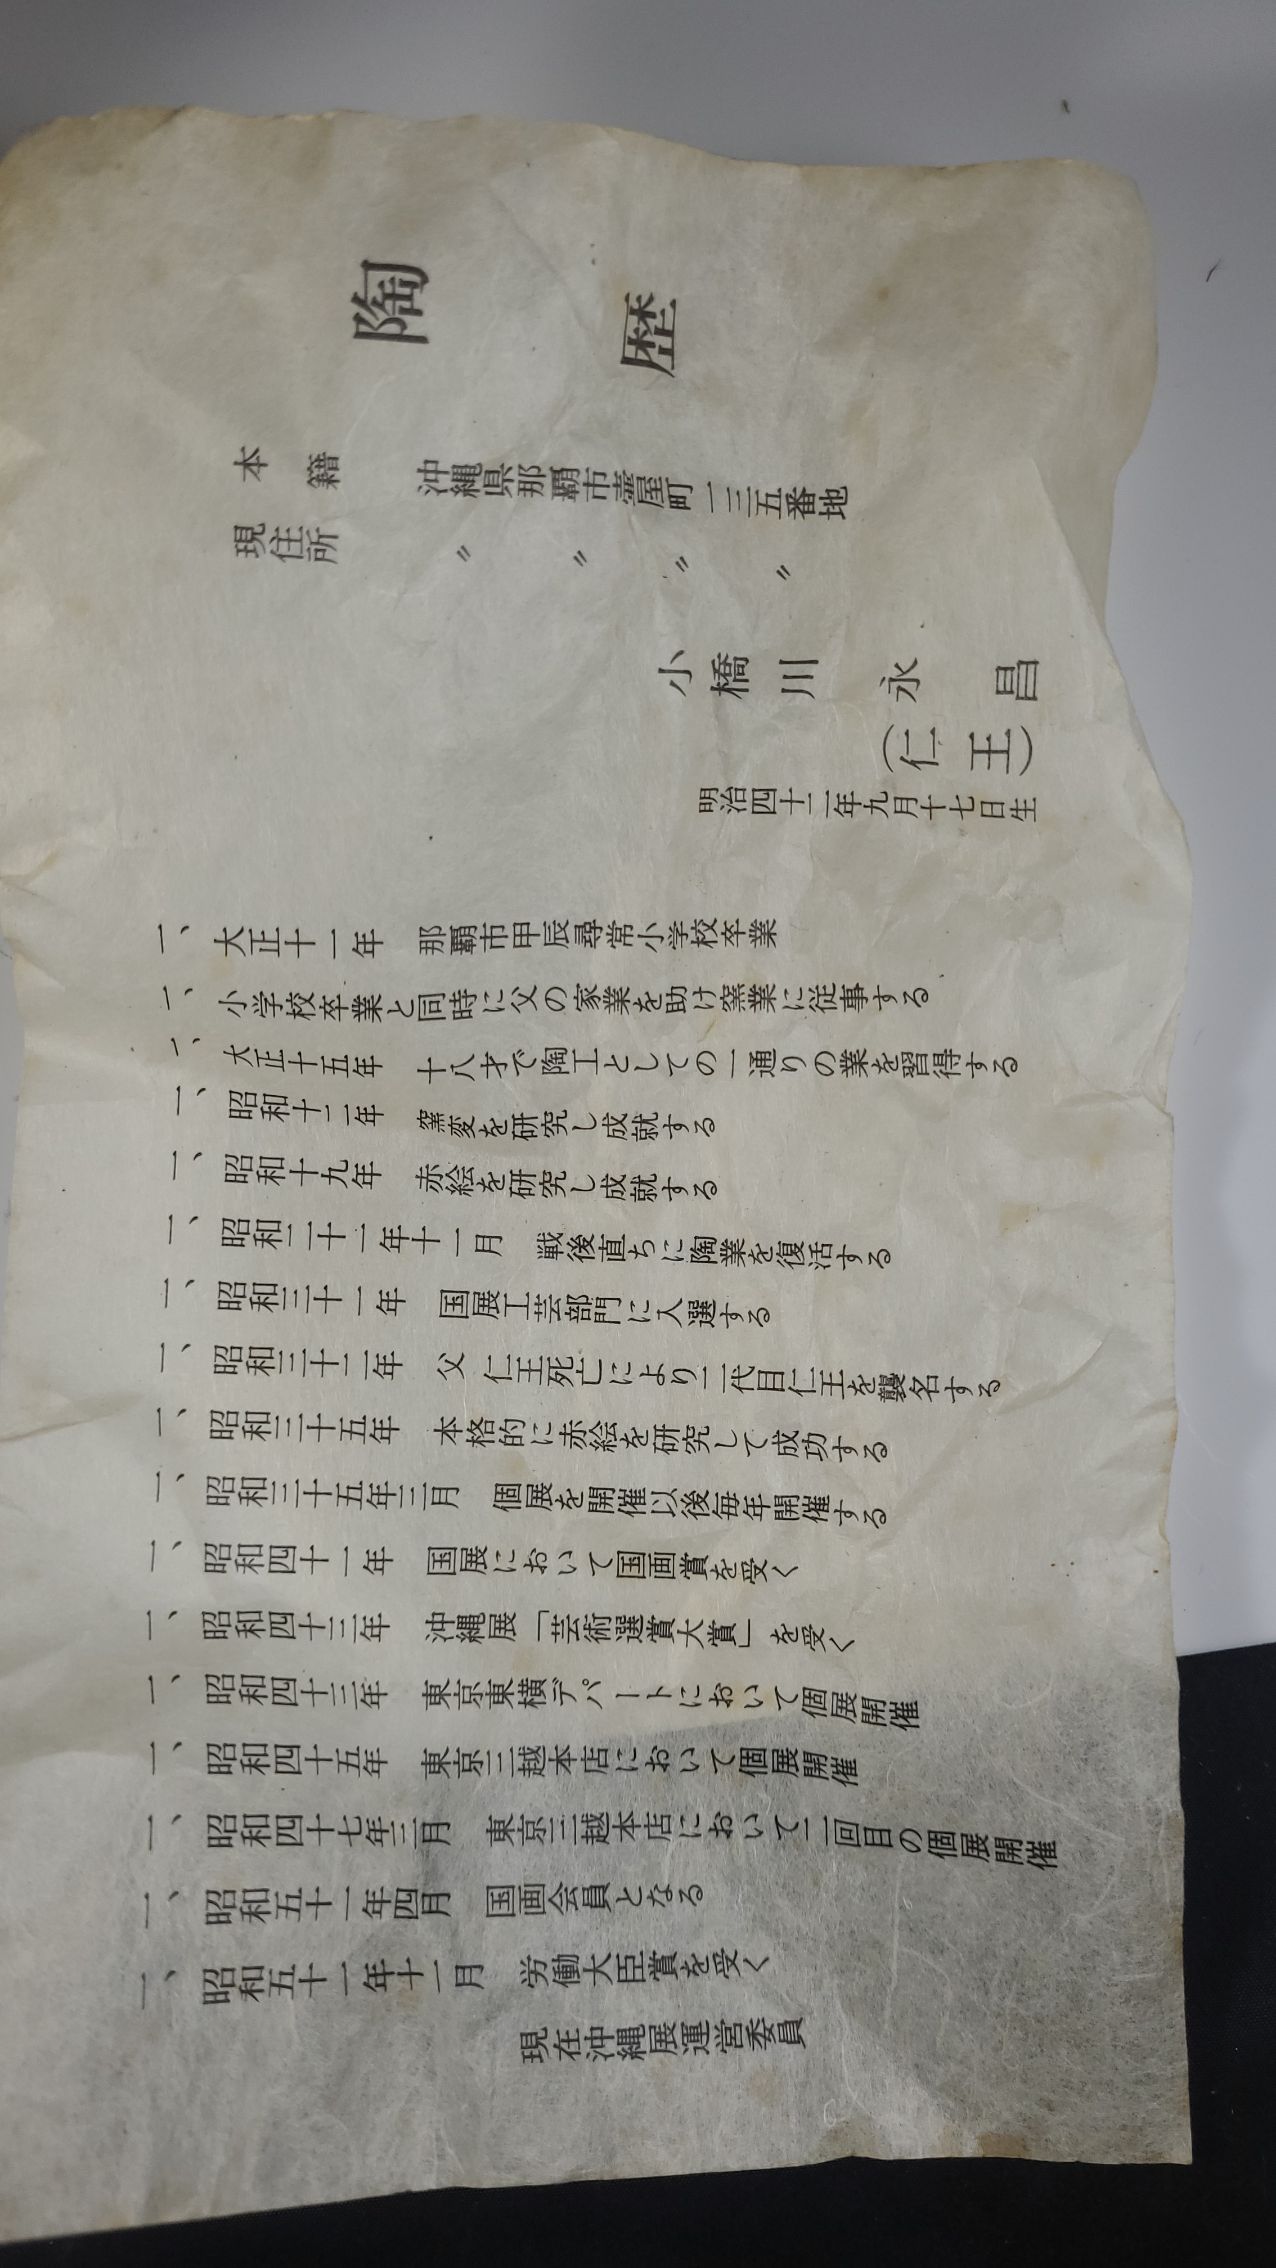 陶歴
本籍 沖縄県那覇市壷屋町一三五番地
現住所 〃 〃 〃 〃
小橋川永昌
(仁王)
明治四十二年九月十七日生
一、大正十一年 那覇市甲辰尋常小学校卒業
一、小学校卒業と同時に父の家業を助け窯業に従事する
一、大正十五年 十八才で陶工としての一通りの業を習得する
一、昭和十二年 窯変を研究し成就する
一、昭和十九年 赤絵を研究し成就する
一、昭和二十一年十一月 戦後直ちに陶業を復活する
一、昭和三十一年 国展工芸部門に入選する
一、昭和三十二年 父 仁王死亡により二代目仁王を襲名する
一、昭和三十五年 本格的に赤絵を研究して成功する
一、昭和三十五年三月 個展を開催以後毎年開催する
一、昭和四十一年 国展において国画賞を受く
一、昭和四十三年 沖縄展「芸術選賞大賞」を受く
一、昭和四十三年 東京東横デパートにおいて個展開催
一、昭和四十五年 東京三越本店において個展開催
一、昭和四十七年三月 東京三越本店において二回目の個展開催
一、昭和五十一年四月 国画会員となる
一、昭和五十一年十一月 労働大臣賞を受く
現在沖縄展運営委員